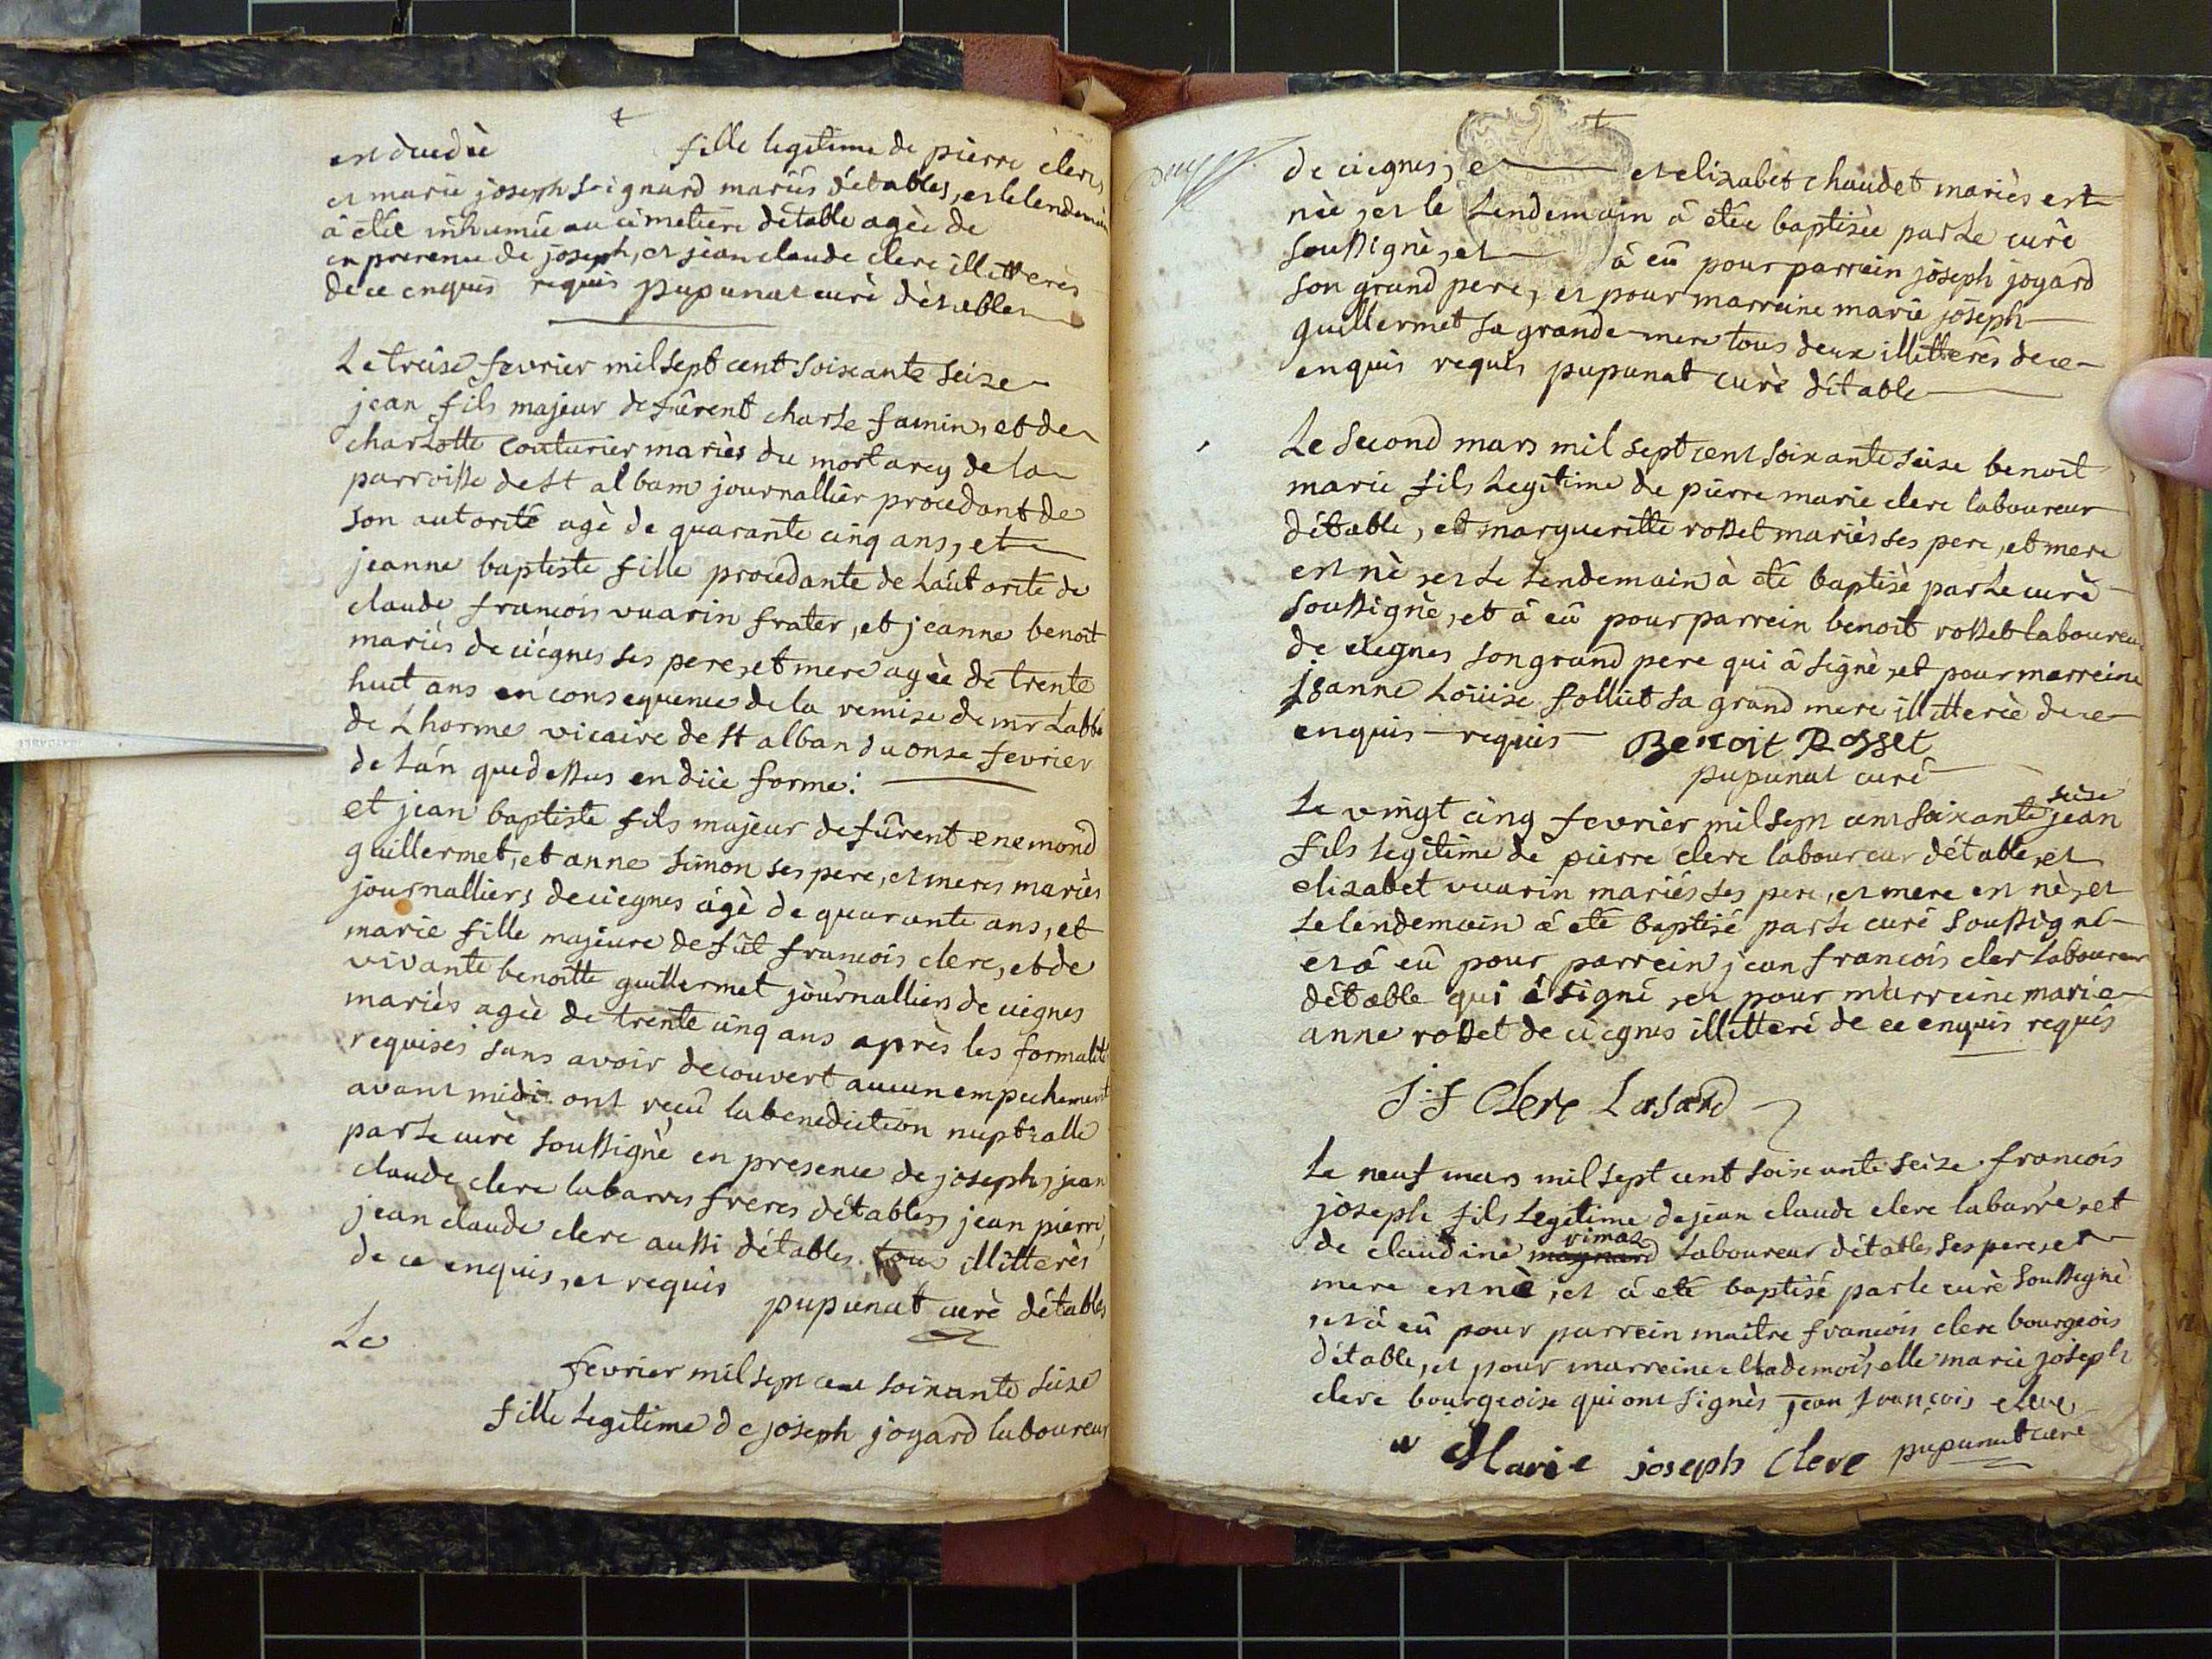 est décèdèe fille legitime de pierre clerc,
et marie joseph seignard mariés d'etables, et le lendemain
à étée inhumée au cimetiere d'etable agée de
en presence de joseph, et jean claude clerc illitterès
de ce enquis requis pupunat curè d'etables
Le treise fevrier mil sept cent soixante seize
jean fils majeur de fûrent charle famin, et de
charlotte couturier mariés du mortarey de la
parroisse de st albam journallier procedant de
son autorité agé de quarante cinq ans, et
jeanne baptiste fille procedante de l'autorité de
claude francois vuarin frater, et jeanne benoit
mariés de ciégnes ses pere, et mere agée de trente
huit ans en consequence de la remise de mr Labbé
de Lhorme vicaire de st alban du onse fevrier
de l'an que dessus en dûe forme:
et jean baptiste fils majeur de fûrent enemond
guillermet, et anne simon ses pere, et meres mariés
journalliers de ciegnes agè de quarante ans, et
marie fille majeure de fût francois clerc, et de
vivante benoitte guillermet journalliers de ciegnes
mariès agèe de trente cinq ans après les formalité
requises sans avoir decouvert aucun empechement
avant midi ont reçû la benediction nuptialle
par le curè soussignè en presence de joseph, jean
claude clerc labarre freres d'etables, jean pierre,
jean claude clerc aussi d'etables tous illitterès
de ce enquis, et requis pupunat curè d'etables
Le
fevrier mil sept cent soixante seize
fille legitime de joseph joyard laboureur
de ciegnes, e et elizabet chaudet mariès est
nèe, et le lendemain à étée baptisèe par le curè
soussignè, et à eû pour parrein joseph joyard
son grand pere, et pour marreine marie joseph
guillermet sa grande mere tous deux illitterès de ce
enquis requis pupunat curè d'etable
Le second mars mil sept cent soixante seise benoit
marie fils legitime de pierre marie clerc laboureur
d'etable, et margueritte rosset mariès ses pere, et mere
est nè, et le lendemain à eté baptisè par le curè
soussignè, et à eû pour parrein benoit rosset laboureur
de ciegnes son grand pere qui à signè, et pour marreine
jeanne Loüise solliet sa grand mere illitterèe de ce
enquis requis Benoit Rosset
pupunat curé
seise
Le vingt cinq fevrier mil sept cent soixante jean
fils legitime de pierre clerc laboureur d'etable, et
elizabet vuarin mariés ses pere, et mere est nè, et
le lendemain à eté baptisé par le curé soussigné
et à eû pour parrein jean francois cler laboureur
d'etable qui à signé, et pour marreine marie
anne rosset de ciegnes illitteré de ce enquis requis
j:f Clerc Lasard
Le neuf mars mil sept cent soixante seize francois
joseph fils legitime de jean claude clerc labarre, et
vimas
de claudine magnard laboureur d'etables ses pere, et
mere est nè, et à eté baptisé par le curè soussigné
, et à eû pour parrein maitre francois clerc bourgeois
d'etable, et pour marreine Mademoiselle marie joseph
clerc bourgeoise qui ont signés jean francois clerc
Marie joseph Clerc pupunat curé